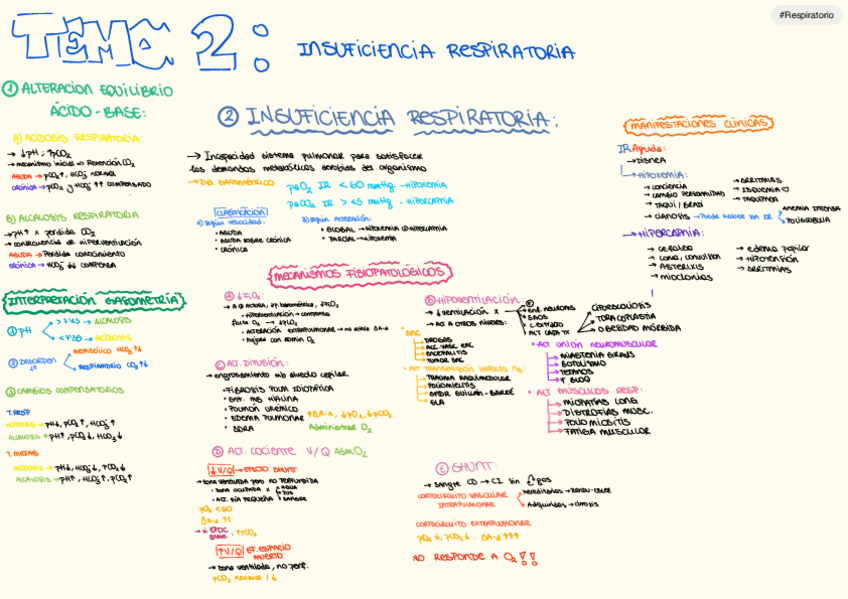 #Respiratorio
TEMA 2: INSUFICIENCIA RESPIRATORIA
① ALTERACIÓN EQUILIBRIO
ÁCIDO-BASE:
A) ACIDOSIS RESPIRATORIA:
→ ↓pH ; ↑pCO₂
→ mecanismo inicial → Retención CO₂
AGUDA → pCO₂↑, HCO₃ normal
CRÓNICA → pCO₂ y HCO₃ ↑↑ COMPENSADO
B) ALCALOSIS RESPIRATORIA
→ pH↑ x perdida CO₂
→ consecuencia de HIPERVENTILACIÓN
AGUDA → Perdida conocimiento
CRÓNICA → HCO₃ ↓ COMPENSA
INTERPRETACIÓN GASOMETRÍA
① pH
> 7'45 → ALCALOSIS
< 7'35 → ACIDOSIS
② DESORDEN 1º
METABÓLICO HCO₃ ↑↓
RESPIRATORIO CO₂ ↑↓
③ CAMBIOS COMPENSATORIOS
T. RESP
ACIDOSIS → pH↓, pCO₂↑, HCO₃↑
ALCALOSIS → pH↑, pCO₂↓, HCO₃↓
T. METAB
ACIDOSIS → pH↓, HCO₃↓, pCO₂↓
ALCALOSIS → pH↑, HCO₃↑, pCO₂↑
② INSUFICIENCIA RESPIRATORIA:
→ Incapacidad sistema pulmonar para satisfacer
las demandas metabólicas del organismo
→ DX GASOMÉTRICO
paO₂ IR < 60 mmHg - HIPOXEMIA
paCO₂ IR > 45 mmHg - HIPERCAPNIA
CLASIFICACIÓN
a) Según velocidad:
• AGUDA
• AGUDA SOBRE CRÓNICA
• CRÓNICA
b) Según alteración:
• GLOBAL → HIPOXEMIA + HIPERCAPNIA
• PARCIAL → HIPOXEMIA
MECANISMOS FISIOPATOLÓGICOS
Ⓐ ↓FiO₂:
• Mejora con admin O₂
Ⓒ ALT. DIFUSIÓN:
→ engrosamiento mb alveolo capilar
• FIBROSIS PULM IDIOPÁTICA
• ENF. MB HIALINA
• PULMÓN URÉMICO
• EDEMA PULMONAR
• SDRA
↑DA-a, ↓pO₂, ↓pCO₂
Administrar O₂
Ⓓ ALT. COCIENTE V/Q
↓V/Q → EFECTO SHUNT
• ALT. VÍA PEQUEÑA
pO₂ < 60
DA-a ↑↑
↑V/Q EF. ESPACIO MUERTO
→ zona ventilada, no perf.
pCO₂ normal / ↓
Ⓑ HIPOVENTILACIÓN:
→ ↓ventilación x
→ ALT A OTROS NIVELES:
• SNC
DROGAS
ACC. VASC ENC
ENCEFALITIS
TUMOR SNC
TRAUMA RAQUIMEDULAR
POLIOMIELITIS
SINDR GUILLAIN-BARRÉ
ELA
ENF. NEURONAS
CIFOESCOLIOSIS
TORACOPLASTIA
OBESIDAD MÓRBIDA
• ALT UNIÓN NEUROMUSCULAR
MIASTENIA GRAVIS
BOTULISMO
TETANOS
• ALT MÚSCULOS RESP:
MIOPATÍAS CONG
DISTROFIAS MUSC.
POLIOMIOSITIS
FATIGA MUSCULAR
Ⓔ SHUNT:
→ Sangre CD → CI Sin ∫ gas
CORTOCIRCUITO VASCULAR
INTRAPULMONAR
Hereditarios → RENDU-OSLER
Adquiridos → cirrosis
CORTOCIRCUITO EXTRAPULMONAR
pO₂ ↓, pCO₂ ↓ . DA-a ↑↑↑
NO RESPONDE A O₂ !!
MANIFESTACIONES CLÍNICAS
IR Aguda:
→ DISNEA
→ HIPOXEMIA:
→ conciencia
→ CAMBIO PERSONALIDAD
→ TAQUI / BRADI
→ CIANOSIS → Puede haber sin IR
ANEMIA INTENSA
POLIGLOBULIA
→ ARRITMIAS
→ ISQUEMIA ♡
→ TAQUIPNEA
→ HIPERCAPNIA:
→ cefalea
→ coma, convulsión
→ ASTERIXIS
→ mioclonias
→ edema papilar
→ HIPOTENSIÓN
→ ARRITMIAS